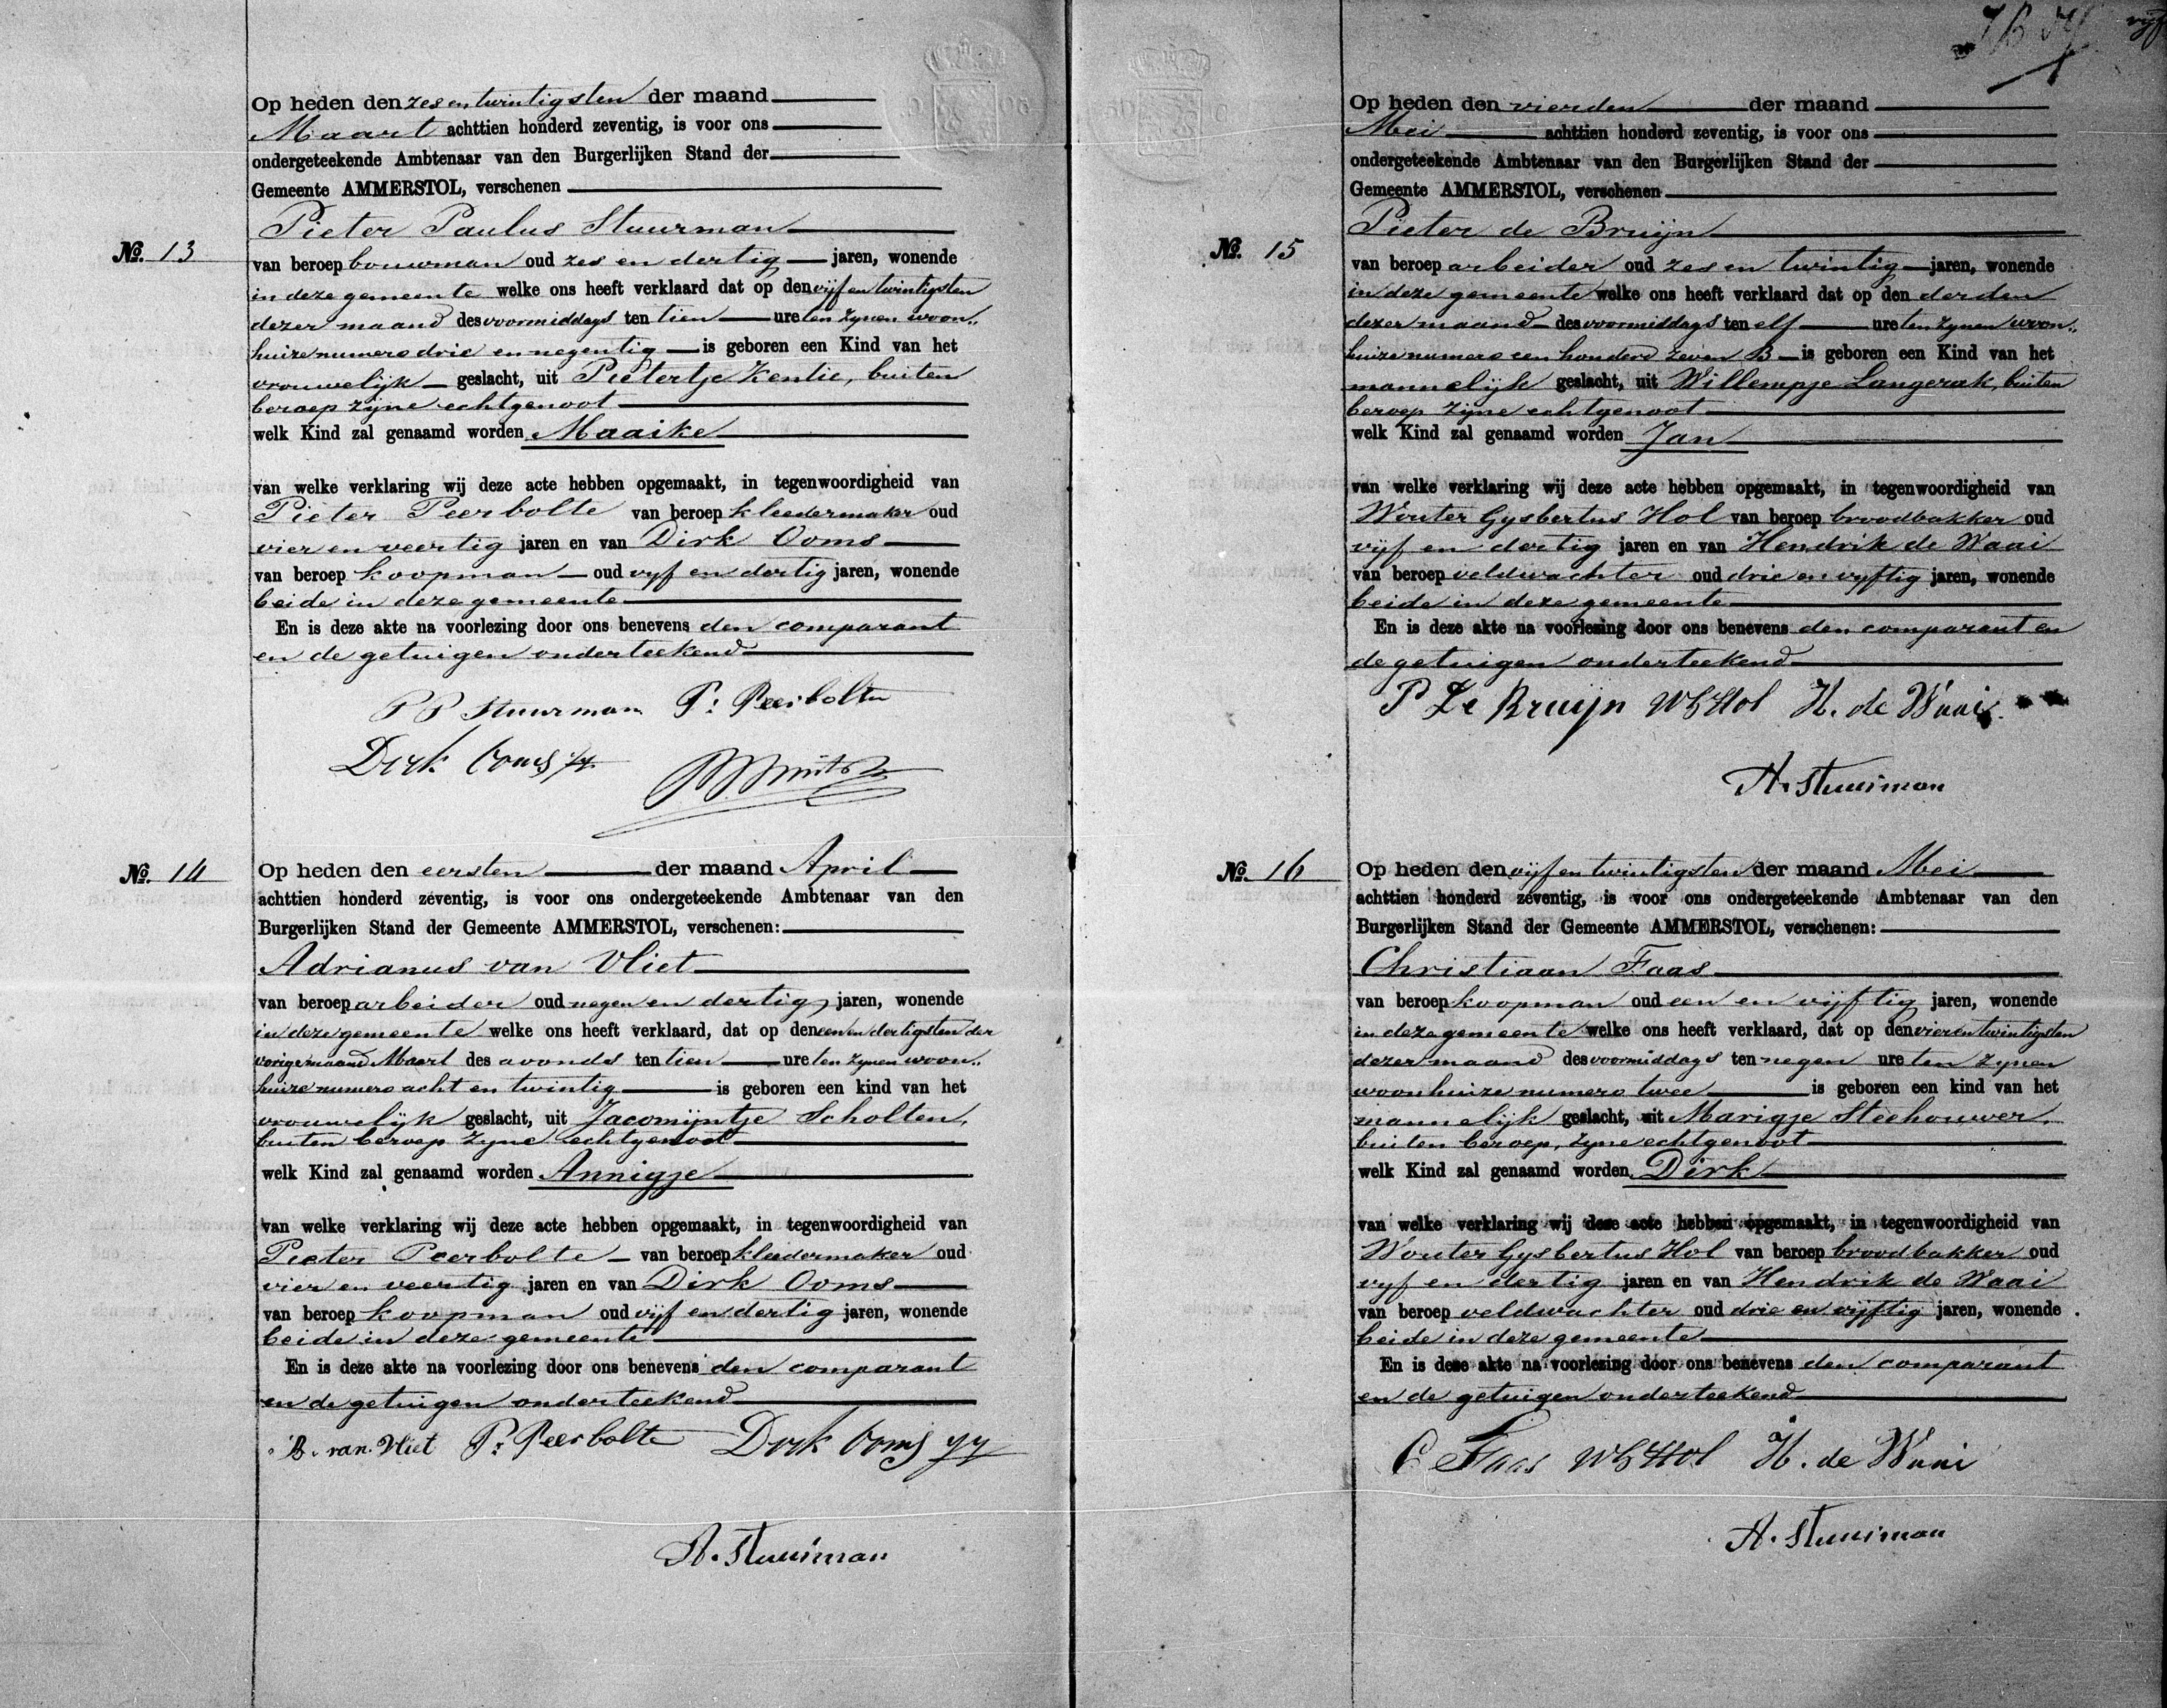 No. 13
Op heden den zes en twintigsten der maand
Maart achttien honderd zeventig, is voor ons
ondergeteekende Ambtenaar van den Burgerlijken Stand der
Gemeente AMMERSTOL, verschenen
Pieter Paulus Stuurman
van beroep bouwman oud zes en dertig jaren, wonende
in deze gemeente welke ons heeft verklaard dat op den vijf en twintigsten
dezer maand des voormiddags ten tien ure ten zynen woon„
huize numero drie en negentig is geboren een Kind van het
vrouwelijk geslacht, uit Pietertje Kentie, buiten
beroep zijne echtgenoot
welk Kind zal genaamd worden Maaike
van welke verklaring wij deze acte hebben opgemaakt, in tegenwoordigheid van
Pieter Peerbolte van beroep kleedermaker oud
vier en veertig jaren en van Dirk Ooms
van beroep koopman oud vyf en dertig jaren, wonende
beide in deze gemeente
En is deze akte na voorlezing door ons benevens den comparant
en de getuigen onderteekend
P P Stuurman P: Peerbolte
Dirk Ooms
No. 14
Op heden den eersten der maand April
achttien honderd zeventig, is voor ons ondergeteekende Ambtenaar van den
Burgerlijken Stand der Gemeente AMMERSTOL, verschenen:
Adrianus van Vliet
van beroep arbeider oud negen en dertig jaren, wonende
in deze gemeente welke ons heeft verklaard, dat op den een en dertigsten der
vorige maand Maart des avonds ten tien ure ten zynen woon„
huize numero acht en twintig is geboren een kind van het
vrouwelijk geslacht, uit Jacomijntje Scholten,
buiten beroep zyne echtgenoot
welk Kind zal genaamd worden Annigje
van welke verklaring wij deze acte hebben opgemaakt, in tegenwoordigheid van
Pieter Peerbolte van beroep kleedermaker oud
vier en veertig jaren en van Dirk Ooms
van beroep koopman oud vijf en dertig jaren, wonende
beide in deze gemeente
En is deze akte na voorlezing door ons benevens den comparant
en de getuigen onderteekend
van Vliet P: Peerbolte Dirk Ooms
A. Stuurman
No. 15
Op heden den vierden der maand
Mei achttien honderd zeventig, is voor ons
ondergeteekende Ambtenaar van den Burgerlijken Stand der
Gemeente AMMERSTOL, verschenen
Pieter de Bruijn
van beroep arbeider oud zes en twintig jaren, wonende
in deze gemeente welke ons heeft verklaard dat op den derden
dezer maand des voormiddags ten elf ure ten zynen woon„
huize numero een honderd zeven B is geboren een Kind van het
mannelijk geslacht, uit Willempje Langerak, buiten
beroep zijne echtgenoot
welk Kind zal genaamd worden Jan
van welke verklaring wij deze acte hebben opgemaakt, in tegenwoordigheid van
Wouter Gysbertus Hol van beroep broodbakker oud
vijf en dertig jaren en van Hendrik de Waai
van beroep veldwachter oud drie en vyftig jaren, wonende
beide in deze gemeente
En is deze akte na voorlezing door ons benevens den comparant en
de getuigen onderteekend
P de Bruijn WGHol H. de Waai
A. Stuurman
No. 16
Op heden den vijf en twintigsten der maand Mei
achttien honderd zeventig, is voor ons ondergeteekende Ambtenaar van den
Burgerlijken Stand der Gemeente AMMERSTOL, verschenen:
Christiaan Faas
van beroep koopman oud een en vijftig jaren, wonende
in deze gemeente welke ons heeft verklaard, dat op den vier en twintigsten
dezer maand des voormiddags ten negen ure ten zynen
woonhuize numero twee is geboren een kind van het
mannelijk geslacht, uit Marigje Steehouwer,
buiten beroep, zyne echtgenoot
welk Kind zal genaamd worden Dirk
van welke verklaring wij deze acte hebben opgemaakt, in tegenwoordigheid van
Wouter Gysbertus Hol van beroep broodbakker oud
vyf en dertig jaren en van Hendrik de Waai
van beroep veldwachter oud drie en vijftig jaren, wonende
beide in deze gemeente
En is deze akte na voorlezing door ons benevens den comparant
en de getuigen onderteekend
C Faas WGHol H. de Waai
A. Stuurman